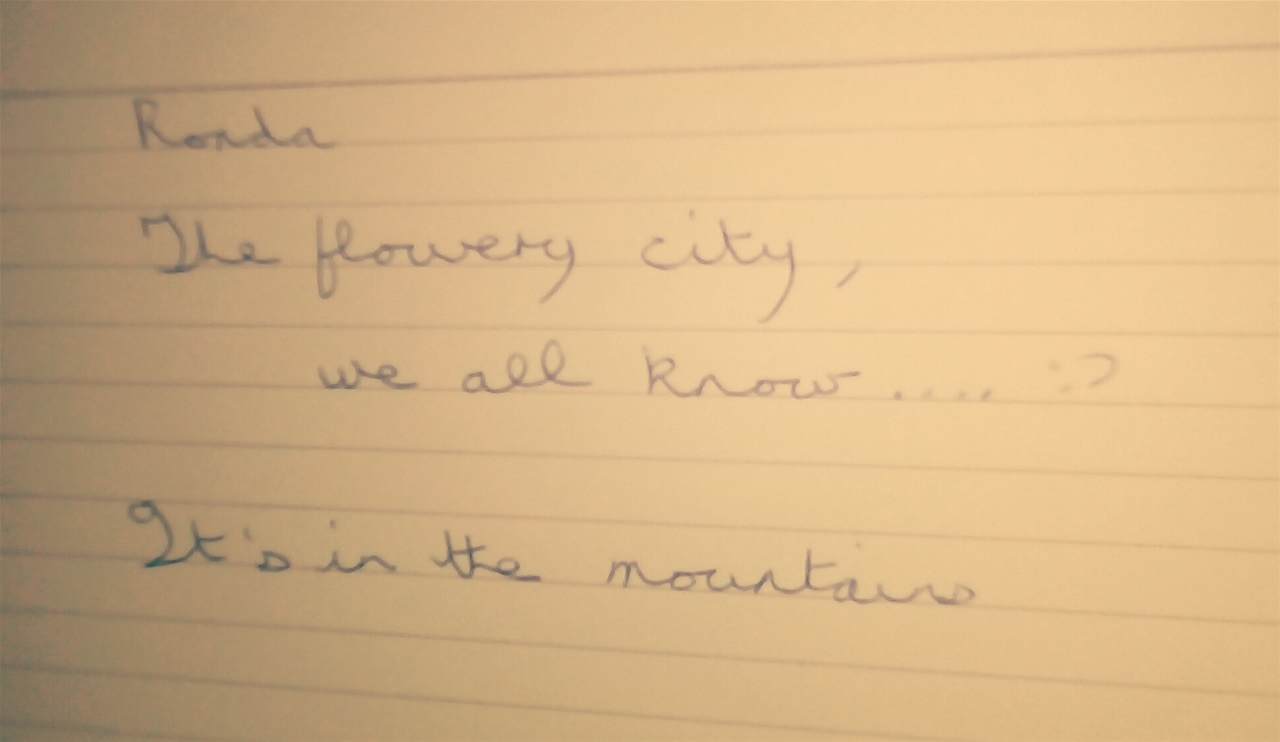 Ronda
The flowery city,
we all know .... :)
It's in the mountains